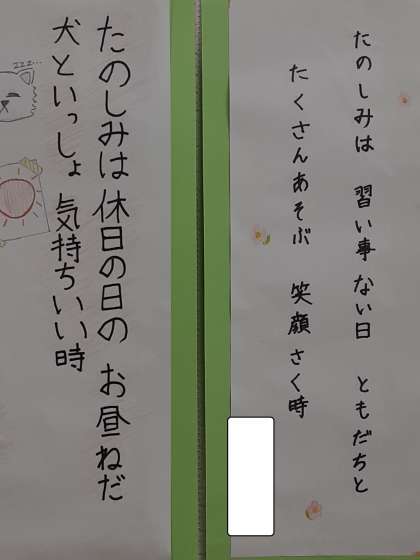 たのしみは 習い事ない日 ともだちと
たくさんあそぶ 笑顔さく時
たのしみは 休日の日の お昼ねだ
犬といっしょ 気持ちいい時
zzz...